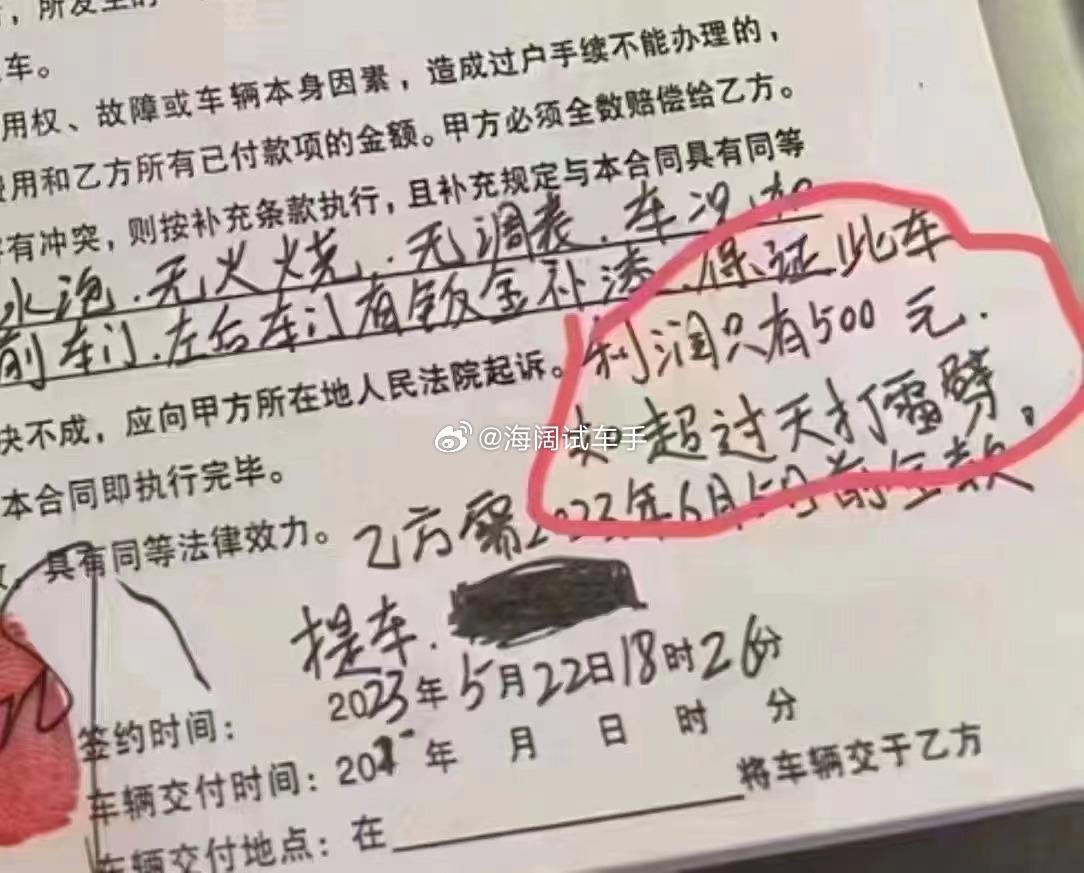 ，所发生的
车。
用权、故障或车辆本身因素，造成过户手续不能办理的，
费用和乙方所有已付款项的金额。甲方必须全数赔偿给乙方。
有冲突，则按补充条款执行，且补充规定与本合同具有同等
水泡.无火烧.无调表.车况如
前车门.左右车门有钣金补漆.保证此车
利润只有500元.
如超过天打雷劈。
决不成，应向甲方所在地人民法院起诉。
@海阔试车手
本合同即执行完毕。
具有同等法律效力。
乙方需2023年6月5日前全款
提车.
签约时间：2023年5月22日18时26分
车辆交付时间：20 年 月 日 时 分
车辆交付地点：在 将车辆交于乙方